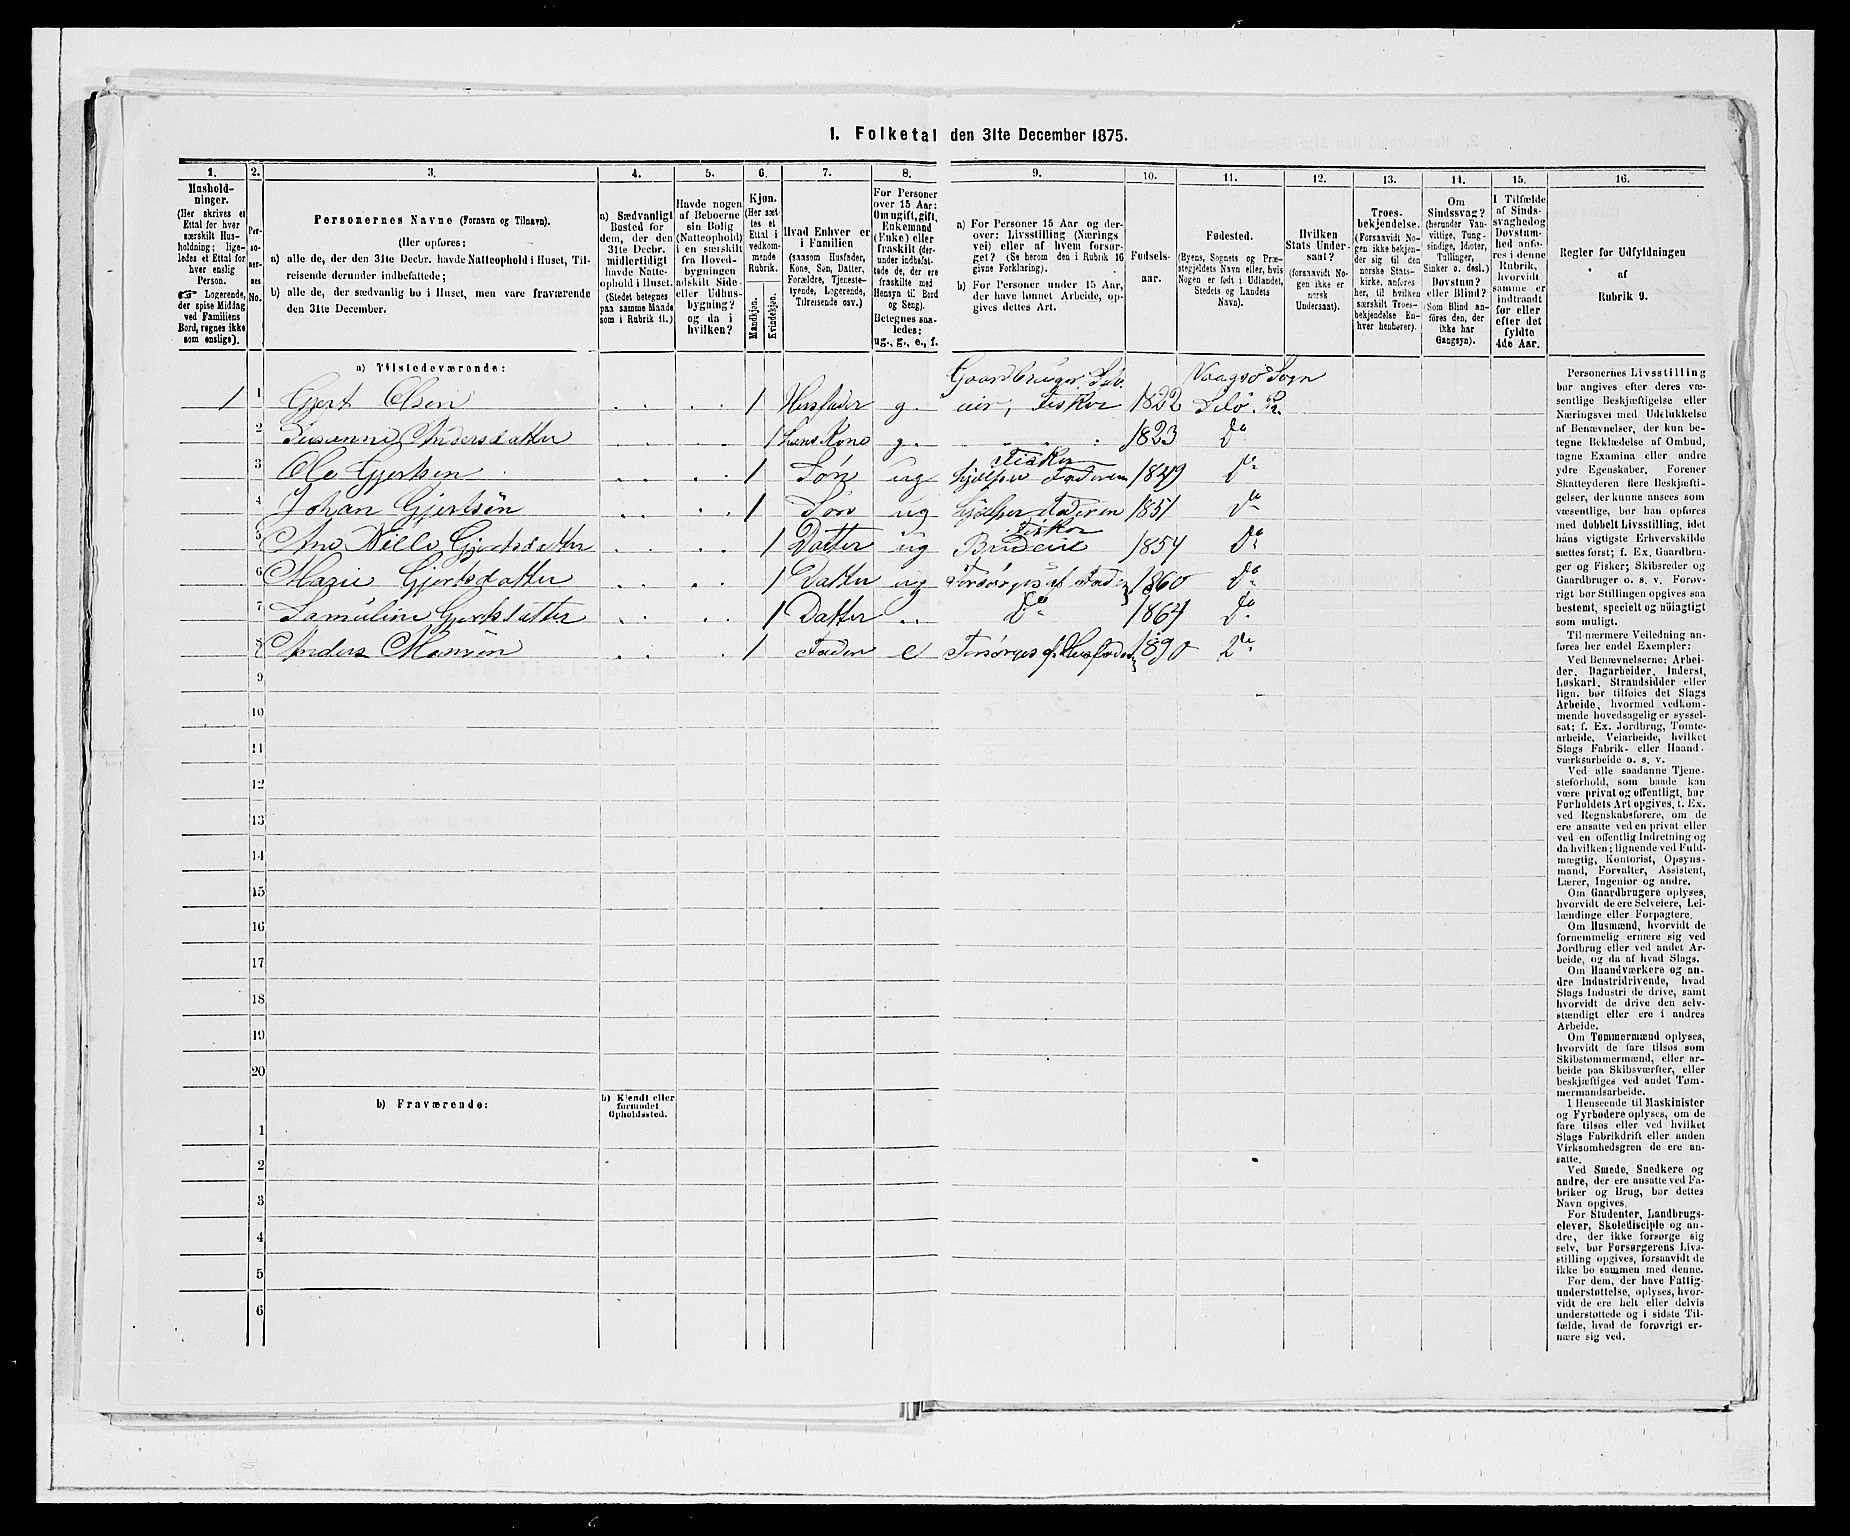 1. Folketal den 31te December 1875.
1. 2. 3. 4. 5. 6. 7. 8. 9. 10. 11. 12. 13. 14. 15. 16.
Hushold-
ninger.
(Her skrives et
Ettal for hver
særskilt Hus-
holdning; lige-
ledes et Ettal for
hver enslig
Person.
☞ Logerende,
der spise Middag
ved Familiens
Bord, regnes ikke
som enslige).
Per-
so-
ner-
nes
No.
Personernes Navne (Fornavn og Tilnavn).
(Her opføres:
a) alle de, der den 31te Decbr. havde Natteophold i Huset, Til-
reisende derunder indbefattede;
b) alle de, der sædvanlig bo i Huset, men vare fraværende
den 31te December.
a) Sædvanligt
Bosted for
dem, der den
31te Decbr.
midlertidigt
havde Natte-
ophold i Huset.
(Stedet betegnes
paa samme Maade
som i Rubrik 11.)
Havde nogen
af Beboerne
sin Bolig
(Natteophold)
i en særskilt
fra Hoved-
bygningen
adskilt Side-
eller Udhus-
bygning?
og da i
hvilken?
Kjøn.
(Her sæt-
tes et
Ettal i
vedkom-
mende
Rubrik.
Mandkjøn.
Kvindekjøn.
Hvad Enhver er
i Familien
(saasom Husfader,
Kone, Søn, Datter,
Forældre, Tjeneste-
tyende, Logerende,
Tilreisende osv.)
For Personer
over 15 Aar:
Om ugift, gift,
Enkemand
(Enke) eller
fraskilt (der-
under indbefat-
tede de, der ere
fraskilte med
Hensyn til Bord
og Seng).
Betegnes saa-
ledes:
ug., g., e., f.
a) For Personer 15 Aar og der-
over: Livsstilling (Nærings
vei) eller af hvem forsør-
get? (Se herom den i Rubrik 16
givne Forklaring).
b) For Personer under 15 Aar,
der have lønnet Arbeide, op-
gives dettes Art.
Fødsels-
aar.
Fødested.
(Byens, Sognets og Præ-
stegjeldets Navn eller, hvis
Nogen er født i Udlandet,
Stedets og Landets
Navn).
Hvilken
Stats Under-
saat?
(forsaavidt No-
gen ikke er
norsk
Undersaat).
Troes-
bekjendelse.
(Forsaavidt No-
gen ikke bekjen-
der sig til den
norske Stats-
kirke, anføres
her, til hvilken
særskilt Troes-
bekjendelse En-
hver henhører).
Om
Sindssvag?
(herunder Van-
vittige, Tung-
sindige, Idioter,
Tullinger,
Sinker o. desl.)
Døvstum?
eller Blind?
Som Blind an-
føres den, der
ikke har
Gangsyn).
I Tilfælde
af Sinds-
svaghed og
Døvstum-
hed anfø-
res i denne
Rubrik,
hvorvidt
samme er
indtraadt
før eller
efter det
fyldte
4de Aar.
Regler for Udfyldningen
af
Rubrik 9.
a) Tilstedeværende:
1 1 Gjert Olsen 1 Husfader g. Gaardbruger, Selv- eier, Fisker 1822 Vaagsø Sogn Selø Pr.
2 Susanne Andersdatter 1 hans Kone g. 1823 Do
3 Ole Gjertsen 1 Søn ug hjælper Faderen Fisker 1849 Do
4 Johan Gjertsen 1 Søn ug hjælper Faderen Fisker 1851 Do
5 Datter ug Budeie 1854 Do
6 Marie Gjertsdatter 1 Datter ug Forsørges af Faderen 1860 Do
7 Samuline Gjertsdatter 1 Datter Do 1864 Do
8 Anders 1 Fader e Forsørges af Husfaderen Do
9
10
11
12
13
14
15
16
17
18
19
20
b) Fraværende:
b) Kjendt eller
formodet
Opholdssted.
1
2
3
4
5
6
Personernes Livsstilling
bør angives efter deres væ-
sentlige Beskjæftigelse eller
Næringsvei med Udelukkelse
af Benævnelser, der kun be-
tegne Beklædelse af Ombud,
tagne Examina eller andre
ydre Egenskaber. Forener
Skatteyderen flere Beskjæfti-
gelser, der kunne ansees som
væsentlige, bør han opføres
med dobbelt Livsstilling, idet
hans vigtigste Erhvervskilde
sættes først; f. Ex. Gaardbru-
ger og Fisker; Skibsreder og
Gaardbruger o. s. v. Forøv-
rigt bør Stillingen opgives saa
bestemt, specielt og nöiagtigt
som muligt.
Til nærmere Veiledning an-
føres her endel Exempler:
Ved Benævnelserne: Arbei-
der, Dagarbeider, Inderst,
Løskarl, Strandsidder eller
lign. bør tilføies det Slags
Arbeide, hvormed vedkom-
mende hovedsagelig er syssel-
sat; f. Ex. Jordbrug, Tomte-
arbeide, Veiarbeide, hvilket
Slags Fabrik- eller Haand-
værksarbeide o. s. v.
Ved alle saadanne Tjene-
steforhold, som baade kan
være privat og offentligt, bør
Forholdets Art opgives, t. Ex.
ved Regnskabsførere, om de
ere ansatte ved en privat eller
ved en offentlig Indretning og
da hvilken; lignende ved Fuld-
mægtig, Kontorist, Opsyns-
mand, Forvalter, Assistent,
Lærer, Ingeniør og andre.
Om Gaardbrugere oplyses,
hvorvidt de ere Selveiere, Lei-
lændinge eller Forpagtere.
Om Husmænd, hvorvidt de
fornemmelig ernære sig ved
Jordbrug eller ved andet Ar-
beide, og da af hvad Slags.
Om Haandværkere og an-
dre Industridrivende, hvad
Slags Industri de drive, samt
hvorvidt de drive den selv-
stændigt eller ere i andres
Arbeide.
Om Tømmermænd oplyses,
hvorvidt de fare tilsøs som
Skibstømmermænd, eller ar-
beide paa Skibsværfter, eller
beskjæftiges ved andet Tøm-
mermandsarbeide.
I Henseende til Maskinister
og Fyrbødere oplyses, om de
fare tilsøs eller ved hvilket
Slags Fabrikdrift eller anden
Virksomhedsgren de ere an-
satte.
Ved Smede, Snedkere og
andre, der ere ansatte ved Fa-
briker og Brug, bør dettes
Navn opgives.
For Studenter, Landbrugs-
elever, Skoledisciple og an-
dre, der ikke forsørge sig
selv, bør Forsørgerens Livs-
stilling opgives, forsaavidt de
ikke bo sammen med denne.
For dem, der have Fattig-
understøttelse, oplyses, hvor-
vidt de ere helt eller delvis
understøttede og i sidste Til-
fælde, hvad de forøvrigt er-
nære sig ved.